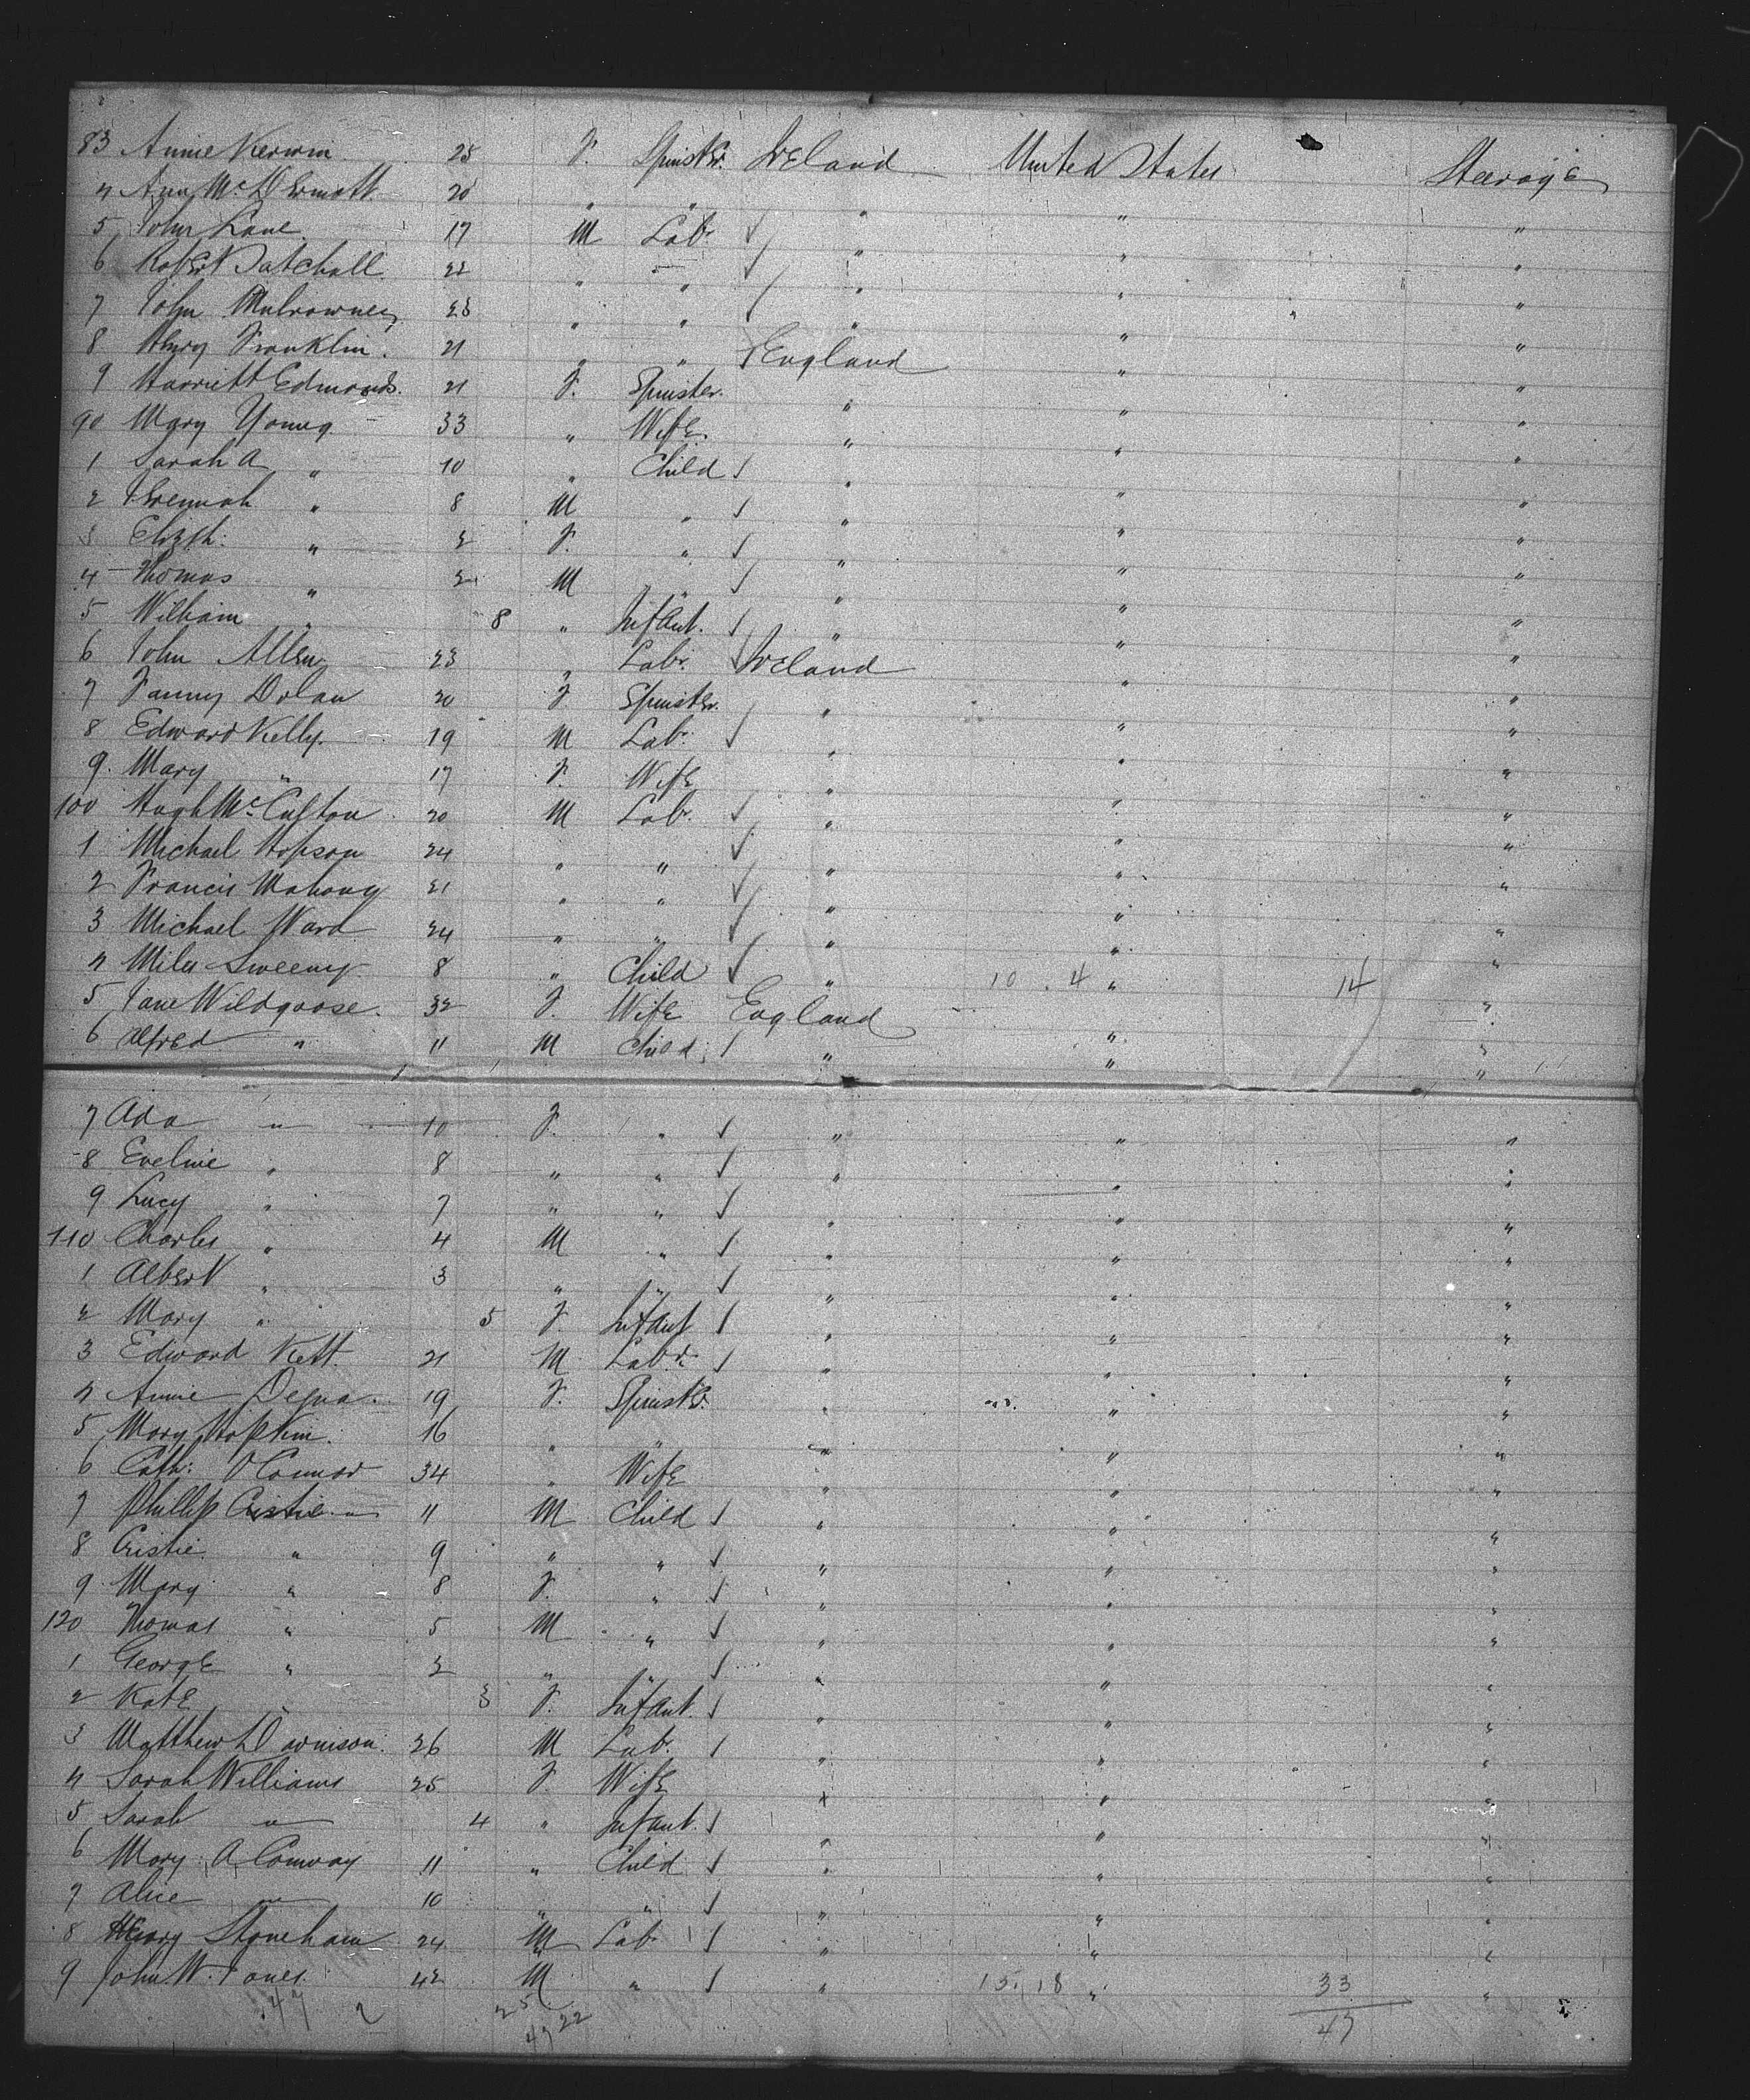 83 Annie Kerwin 25 F. Spinster. Ireland United States Steerage
4 Ann McDermott 20 " " " " "
5 John Lane 17 M Labr " " "
6 Robert Satchell 22 " " " " "
7 John Mulrowney 23 " " " " "
8 Henry Franklin. 21 " " England " "
9 Harriett Edmonds. 21 F. Spinster. " " "
90 Mary Young 33 " Wife. " " "
1 Sarah A " 10 " Child " " "
2 Jeremiah " 8 M " " " "
3 Elizth: " 2 F. " " " "
4 Thomas " 2 M " " " "
5 William " 8 " Infant. " " "
6 John Allen 23 " Labr. Ireland " "
7 Fanny Dolan 20 F Spinster. " " "
8 Edward Kelly. 19 M Labr " " "
9. Mary " 17 F. Wife " " "
100 Hugh Mc 20 M Labr. " " "
1 Michael Hopson 24 " " " " "
2 Francis Mahony 21 " " " " "
3 Michael Ward 24 " " " " "
4 Miles Sweeney 8 " Child " 10 . 4 " 14 "
5 Jane Wildgoose. 32 F. Wife England " "
6 Alfred " 11 M Child " " "
7 Ada " 10 F. " " " "
8 Eveline " 8 " " " " "
9 Lucy " 7 " " " " "
110 Charles " 4 M " " " "
1 Albert " 3 " " " " "
2 Mary " 5 F Infant " " "
3 Edward Kett. 21 M Labr. " " "
4 Annie 19 F. Spinster. " " "
5 Mary Hopkin. 16 " " " " "
6 Cath: O'Connor 34 " Wife " " "
7 Phillip Cristie " 11 M Child " " "
8 Cristie " 9 " " " " "
9. Mary " 8 F. " " " "
120 Thomas " 5 M " " " "
1 George " 2 " " " " "
2 Kate " 3 F. Infant. " " "
3 Matthew 26 M Labr. " " "
4 Sarah Williams 25 F. Wife " " "
5 Sarah " 4 " Infant. " " "
6 Mary A Conway 11 " Child " " "
7 Alice " 10 " " " " "
8 Henry Stoneham 24 M Labr " " "
9 John W. Jones. 42 M " " 15. 18 " 33 "
47 2 25 22 47
47